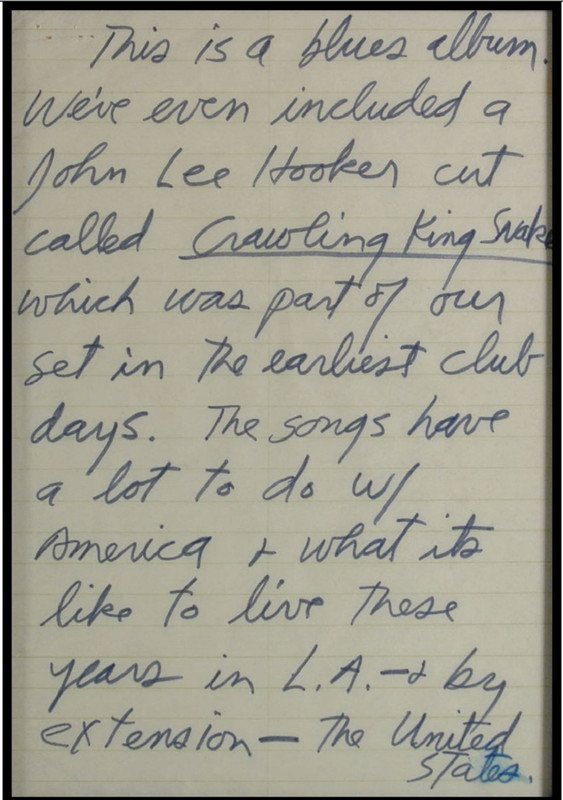 This is a blues album.
We've even included a
John Lee Hooker cut
called Crawling King Snake
which was part of our
set in the earliest club
days. The songs have
a lot to do w/
America & what its
like to live these
years in L.A.-& by
extension— the United
States.